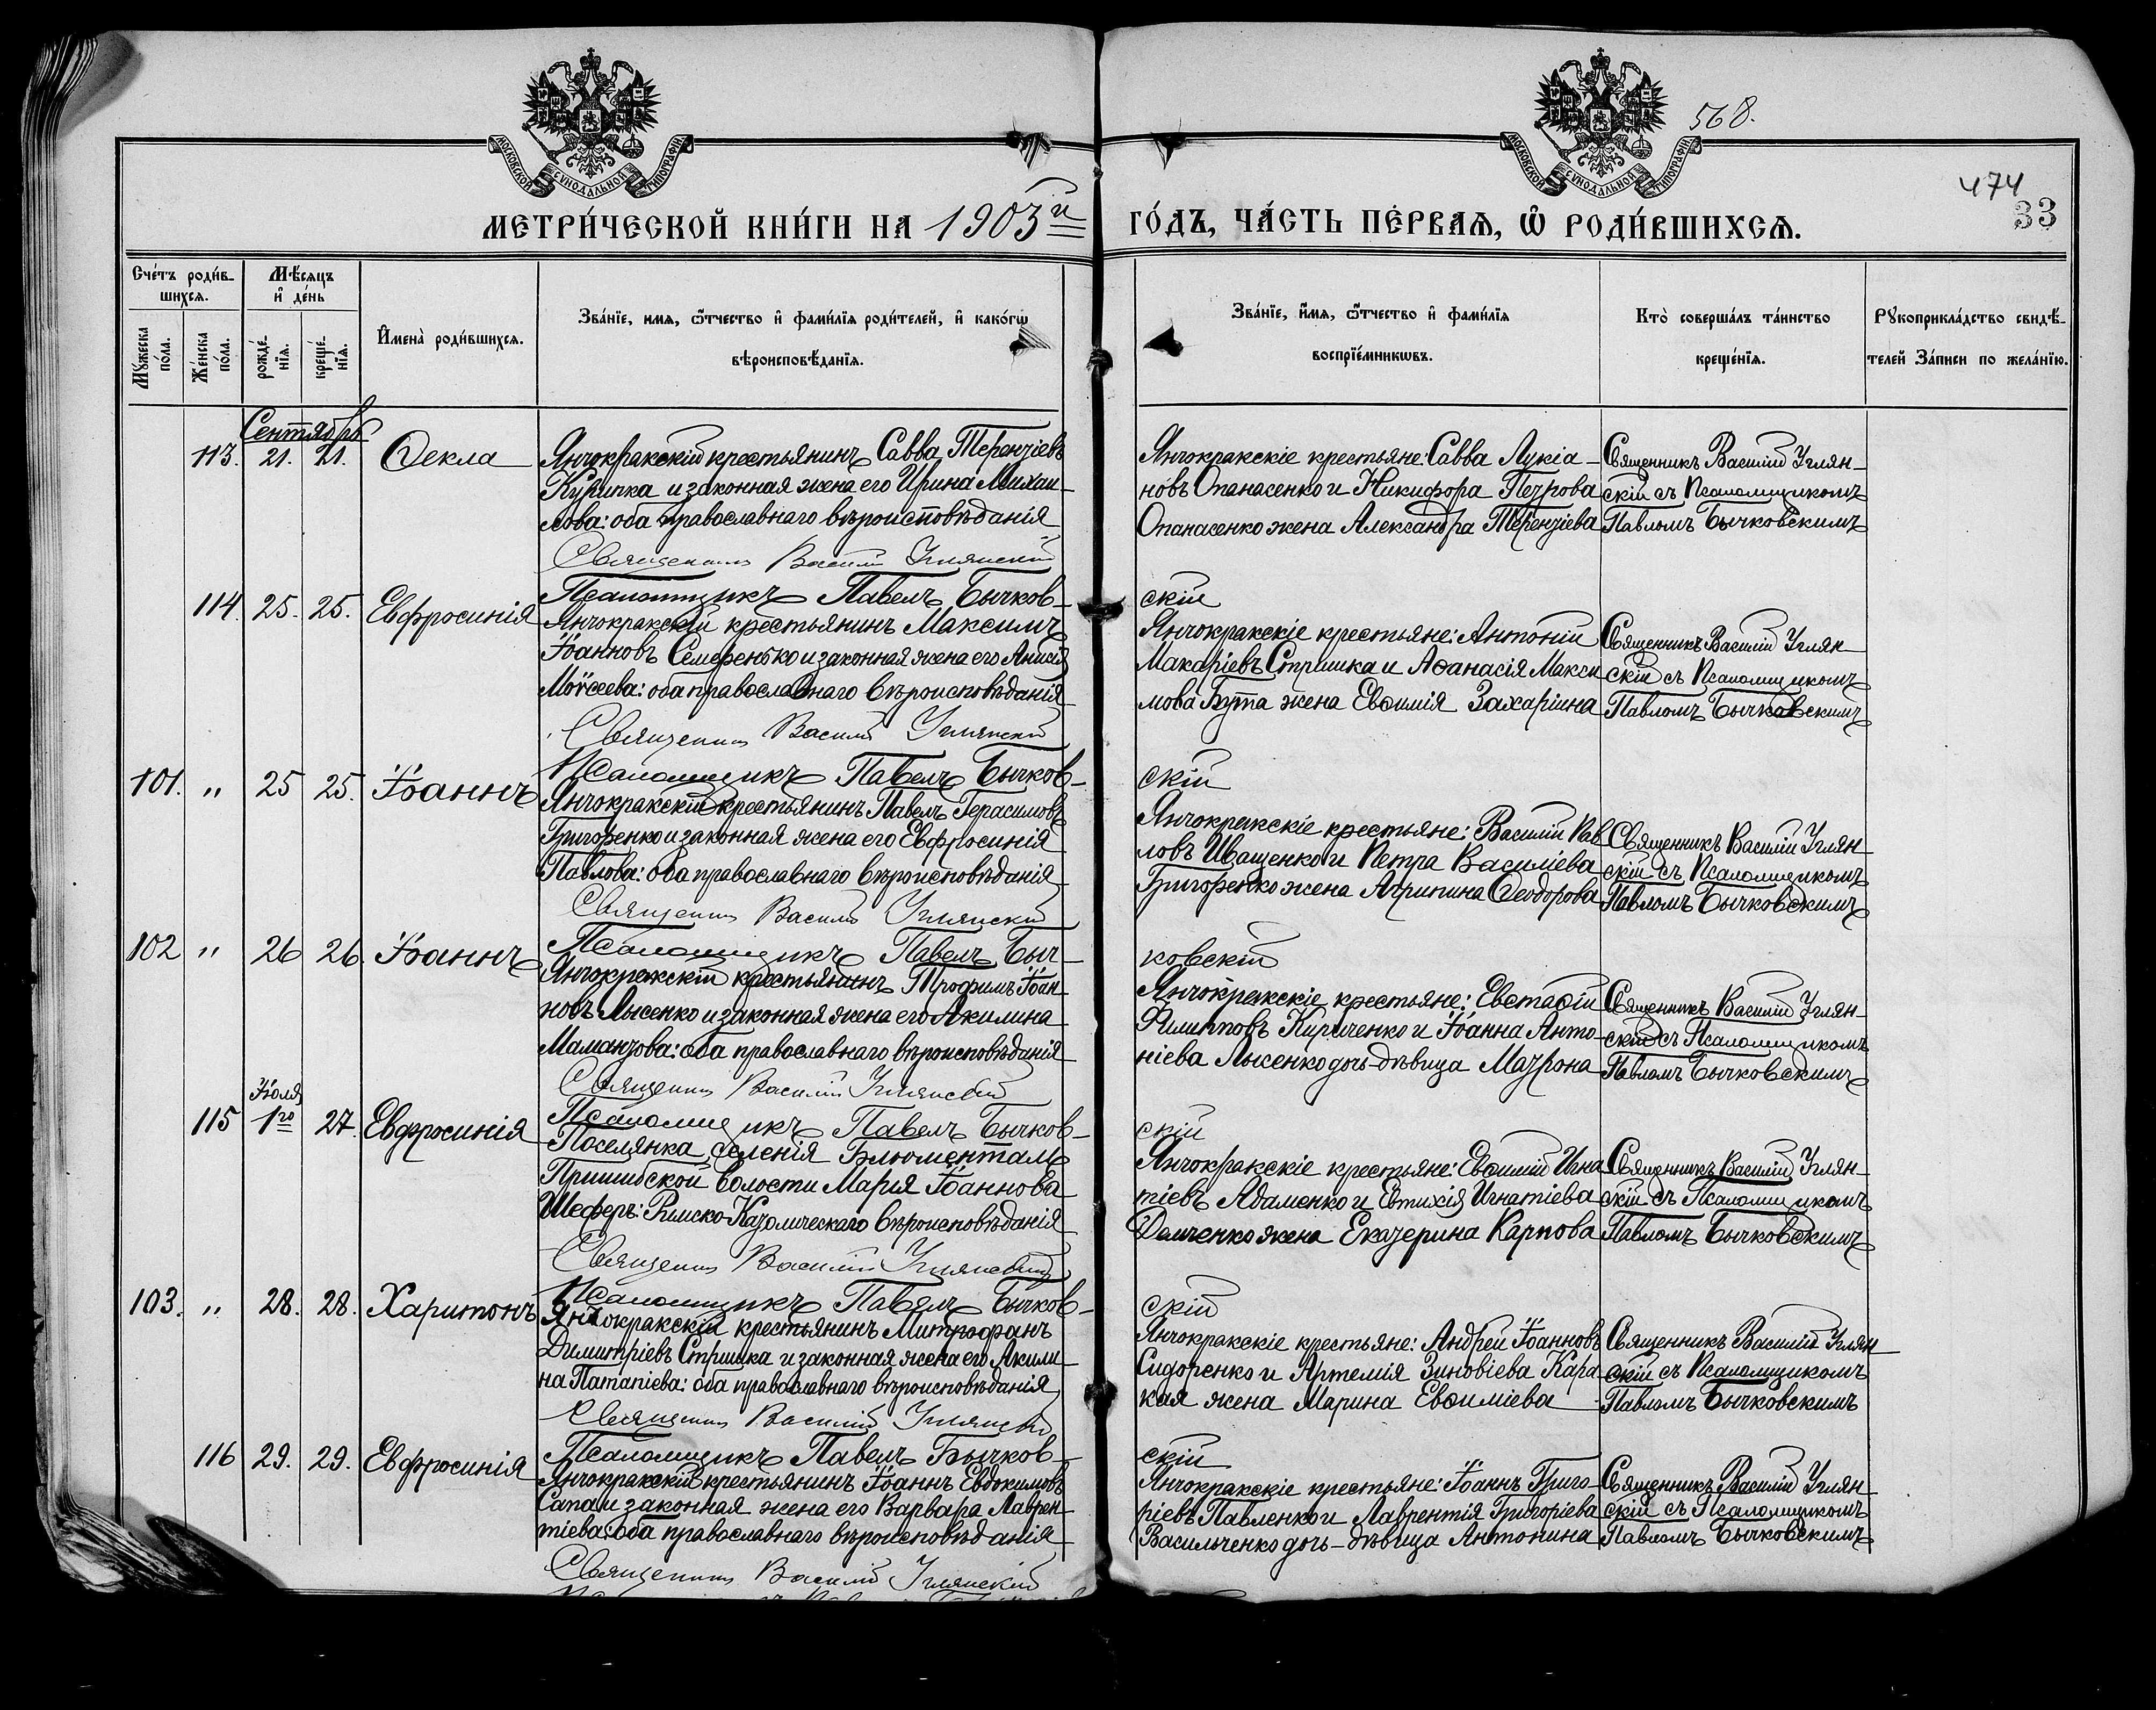 МОСКОВСКОЙ СѴНОДАЛЬНОЙ ТИПОГРАФІИ
МОСКОВСКОЙ СѴНОДАЛЬНОЙ ТИПОГРАФІИ
568.
474
33
МЕТРИ́ЧЕСКОЙ КНИ́ГИ НА 1903й
ГО́ДЪ, ЧА́СТЬ ПЕ́РВАѦ, Ѡ҆ РОДИ́ВШИХСѦ.
Сче́тъ роди́в-
шихсѧ.
Мѣ́сѧцъ
и҆ де́нь
Мꙋ́жеска
по́ла.
Же́нска
по́ла.
рожде́-
нїѧ.
креще́-
нїѧ.
И҆мена̀ роди́вшихсѧ.
Зва́нїе, имѧ, ѻ҆́тчество и҆ фами́лїѧ роди́телей, и҆ како́гѡ
вѣроисповѣ́данїѧ.
Зва́нїе, и҆́мѧ, ѻ҆́тчество и҆ фами́лїѧ
воспрїе́мникѡвъ.
Кто̀ соверша́лъ та́инство
креще́нїѧ.
Рꙋкоприкла́дство свидѣ́-
телей За́писи по жела́нїю.
Сентябрь
113. 21. 21. Ѳекла
Янчокракскій крестьянинъ Савва Терентіевъ
Курипка и законная жена его Ирина Михаи-
лова: оба православнаго вѣроисповѣданія
Священникъ Василій Углянскій
Янчокракскіе крестьяне: Савва Лукіа-
новъ Опанасенко и Никифора Петрова
Опанасенко жена Александра Терентіева
Священникъ Василій Углян-
скій съ Псаломщикомъ
Павломъ Бычковскимъ
Псаломщикъ Павелъ Бычков-
скій
114. 25. 25. Евфросинія
Янчокракскій крестьянинъ Максимъ
Іоанновъ Семеренько и законная жена его Анисія
Моѵсеева: оба православнаго вѣроисповѣданія
Священникъ Василій Углянскій
Янчокракскіе крестьяне: Антоній
Макаріевъ Стришка и Аѳанасія Макси
мова Бута жена Евѳимія Захаріина
Священникъ Василій Углян
скій съ Псаломщикомъ
Павломъ Бычковскимъ
Псаломщикъ Павелъ Бычков-
скій
101. " 25 25. Іоаннъ
Янчокракскій крестьянинъ Павелъ Герасимовъ
Григоренко и законная жена его Евфросинія
Павлова: оба православнаго вѣроисповѣданія
Священникъ Василій Углянскій
Янчокракскіе крестьяне: Василій Пав
ловъ Иващенко и Петра Василіева
Григоренко жена Агрипина Ѳеодорова
Священникъ Василій Углян-
скій съ Псаломщикомъ
Павломъ Бычковскимъ
Псаломщикъ Павелъ Быч-
ковскій
102 " 26 26. Іоаннъ
Янчокракскій крестьянинъ Трофимъ Іоан-
новъ Лысенко и законная жена его Акилина
Мамантова: оба православнаго вѣроисповѣданія
Священникъ Василій Углянскій
Янчокракскіе крестьяне: Евстафій
Филипповъ Кириченко и Іоанна Анто-
ніева Лысенко дочь-дѣвица Матрона
Священникъ Василій Углян-
скій съ Псаломщикомъ
Павломъ Бычковскимъ
Псаломщикъ Павелъ Бычков-
скій
Іюля
115 1го 27. Евфросинія
Поселянка селенія Блюменталь
Пришибской волости Марія Іоаннова
Шеферъ: Римско-Католическаго вѣроисповѣданія
Священникъ Василій Углянскій
Янчокракскіе крестьяне: Евѳимій Игна
тіевъ Адаменко и Евтихія Игнатіева
Демченко жена Екатерина Карпова
Священникъ Василій Углян-
скій съ Псаломщикомъ
Павломъ Бычковскимъ
Псаломщикъ Павелъ Бычков-
скій
103. " 28. 28. Харитонъ
Янчокракскій крестьянинъ Митрофанъ
Димитріевъ Стришка и законная жена его Акили-
на Патапіева: оба православнаго вѣроисповѣданія
Священникъ Василій Углянскій
Янчокракскіе крестьяне: Андрей Іоанновъ
Сидоренко и Артемія Зиновіева Кара-
кая жена Марина Евѳиміева
Священникъ Василій Углян
скій съ Псаломщикомъ
Павломъ Бычковскимъ
Псаломщикъ Павелъ Бычков-
скій
116 29. 29. Евфросинія
Янчокракскій крестьянинъ Іоаннъ Евдокимовъ
Сапа и законная жена его Варвара Лаврен-
тіева: оба православнаго вѣроисповѣданія
Священникъ Василій Углянскій
Янчокракскіе крестьяне: Іоаннъ Григо-
ріевъ Павленко и Лаврентія Григоріева
Васильченко дочь-дѣвица Антонина
Священникъ Василій Углян-
скій съ Псаломщикомъ
Павломъ Бычковскимъ